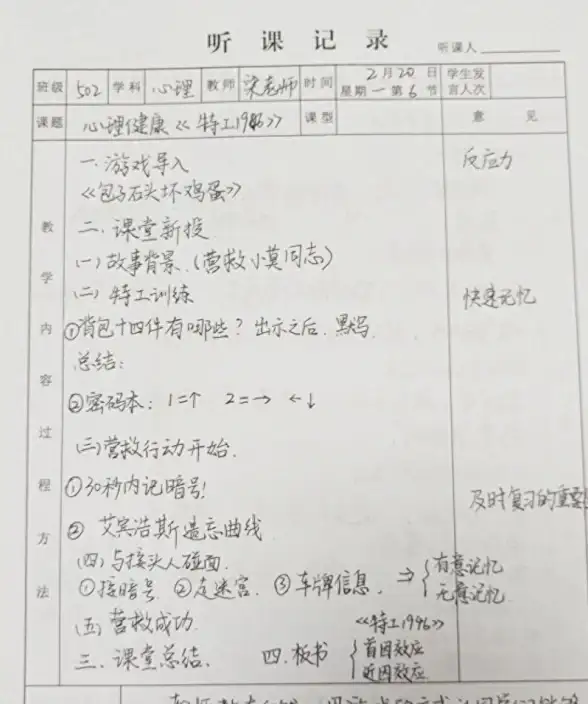 听课记录
听课人
班级 502 学科 心理 教师 梁老师 时间 2月20日 星期一第6节 学生发言人次
课题 心理健康《特工1946》 课型 意见
教学内容过程方法
一.游戏导入 反应力
《包子石头坏鸡蛋》
二.课堂新授
(一)故事背景.(营救小莫同志)
(二)特工训练 快速记忆
①背包十四件有哪些?出示之后.默写.
总结:
②密码本: 1=↑ 2=→ ←↓
(三)营救行动开始.
①30秒内记暗号! 及时复习的重要
② 艾宾浩斯遗忘曲线
(四)与接头人碰面.
①接暗号 ②走迷宫. ③车牌信息. ⇒ {有意记忆
无意记忆
(五)营救成功. 《特工1946》
三.课堂总结. 四.板书 {首因效应
近因效应